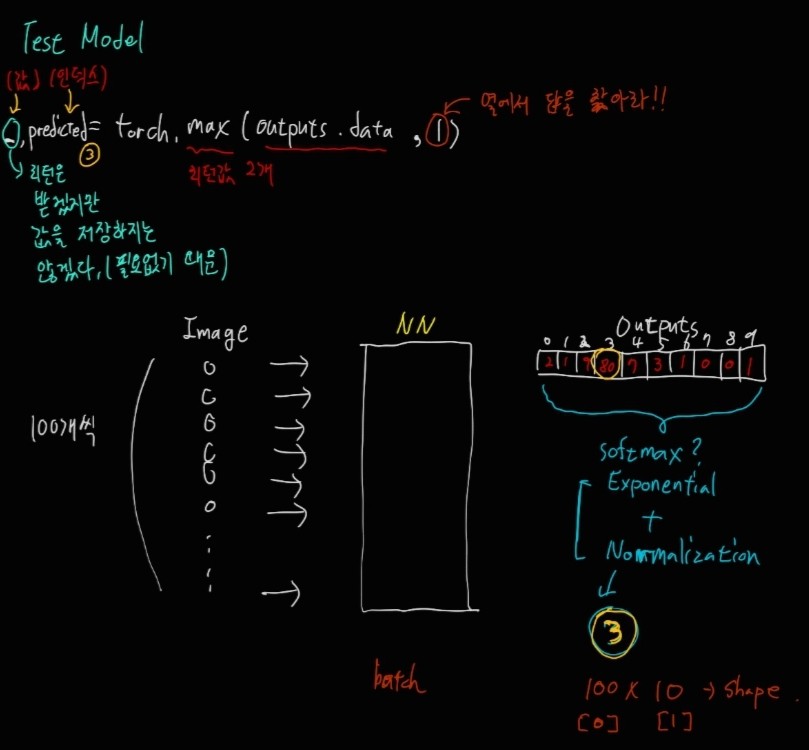 Test Model
(값) (인덱스)
_, predicted = torch. max (outputs . data , 1)
③
열에서 답을 찾아라!!
리턴값 2개
리턴은
받겠지만
값을 저장하지는
않겠다, (필요없기 때문)
Image
NN
Outputs
0 1 2 3 4 5 6 7 8 9
2 1 9 80 7 3 1 0 0 1
100개씩
softmax?
Exponential
+
Normalization
3
batch
100 x 10 → shape .
[0] [1]